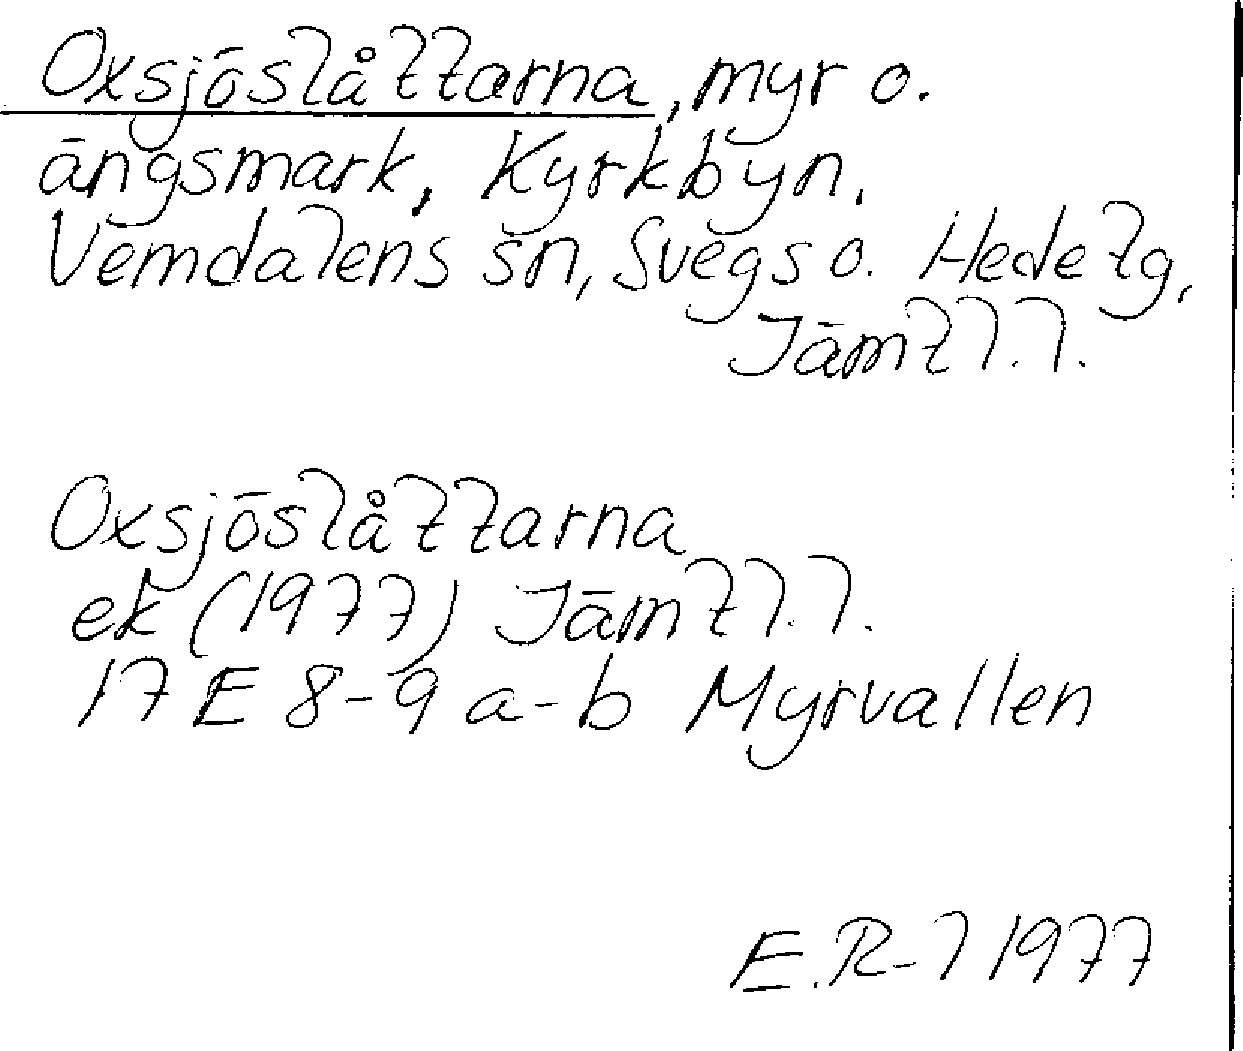 Oxsjöslåttarna, myr o.
ängsmark, Kyrkbyn,
Vemdalens sn, Svegs o. Hede tg,
Jämtl. l.
Oxsjöslåttarna
ek (1977) Jämtl. l.
17 E 8-9 a-b Myrvallen
E.R-l 1977